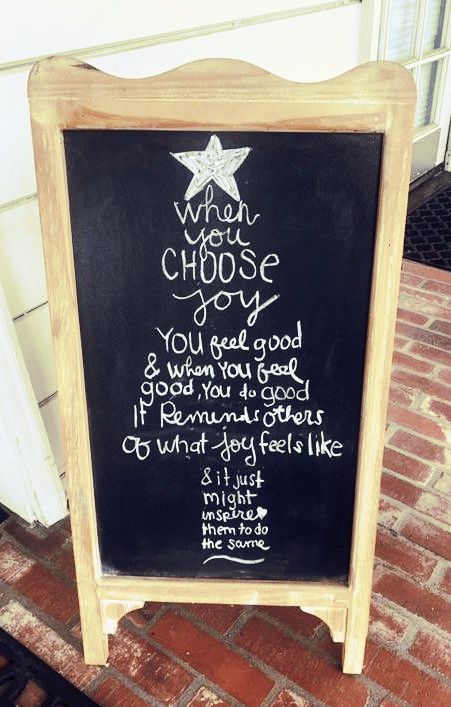 when
you
CHOOSE
joy
YOU feel good
& when YOU feel
good, YOU do good
It Reminds others
Of what joy feels like
& it just
might
inspire
them to do
the same